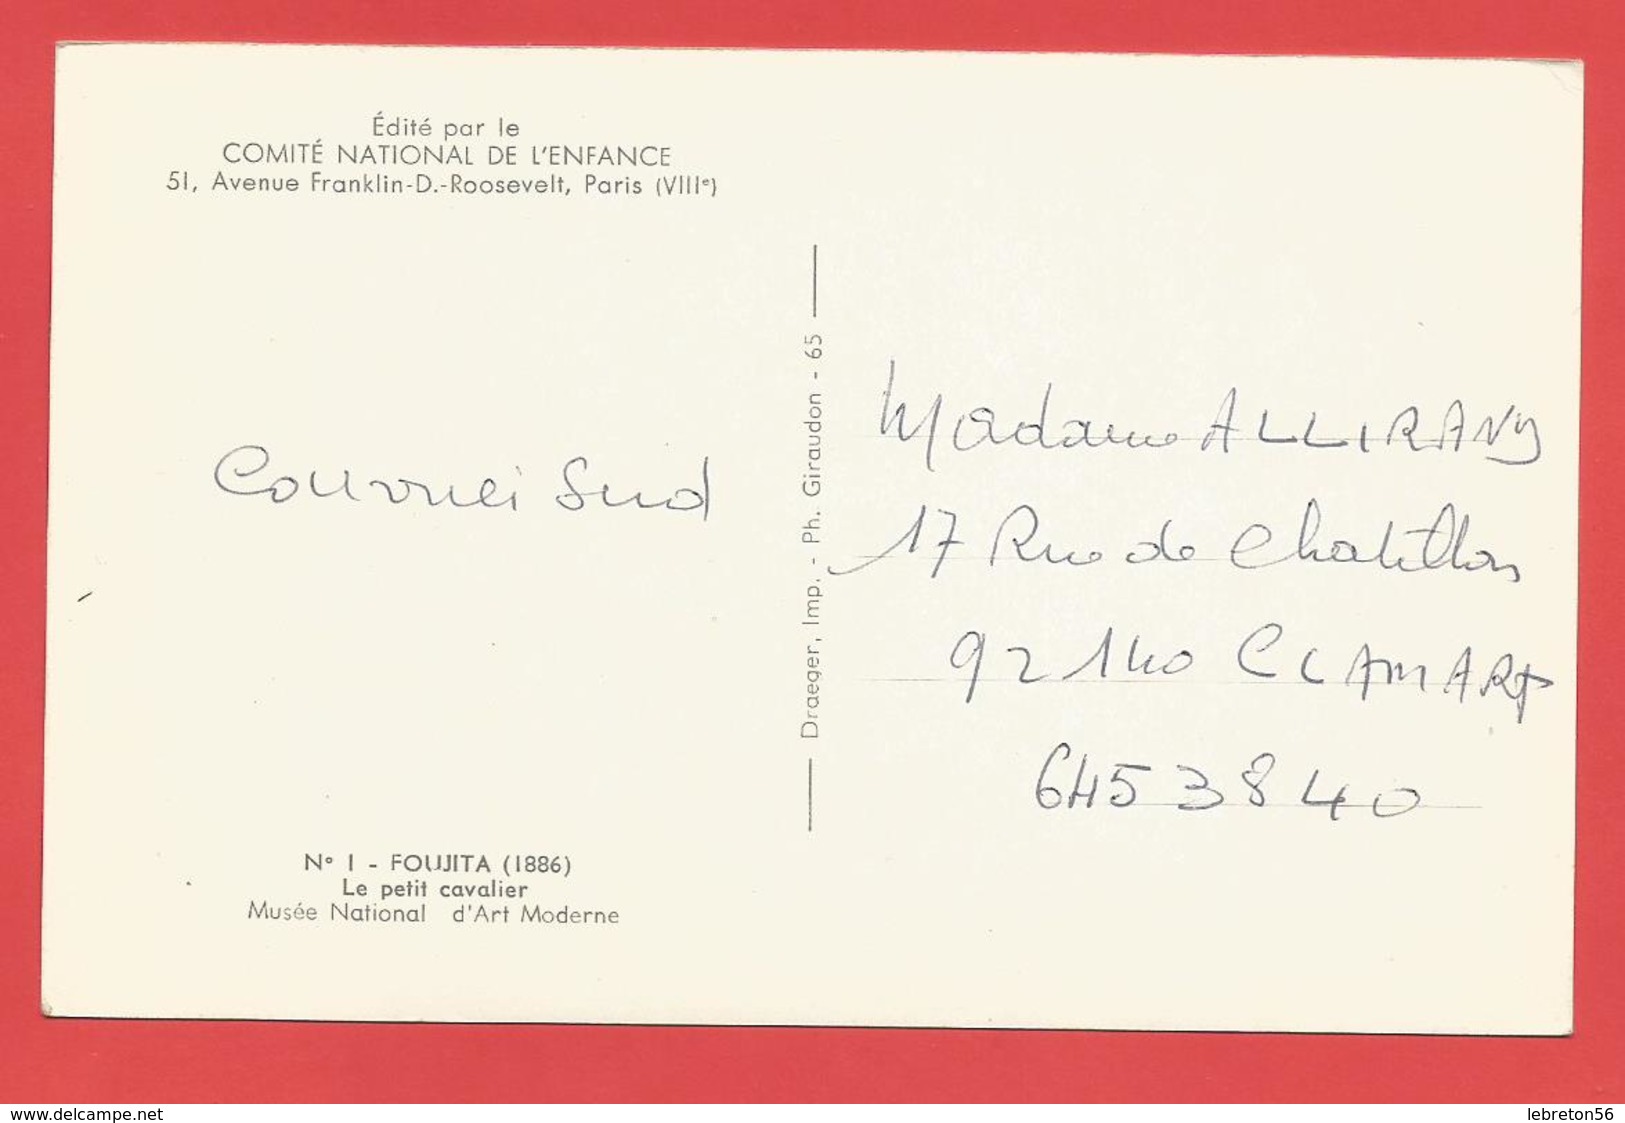 Édité par le
COMITÉ NATIONAL DE L'ENFANCE
51, Avenue Franklin-D.-Roosevelt, Paris (VIIIᵉ)
Sud
N° 1 - FOUJITA (1886)
Le petit cavalier
Musée National d'Art Moderne
Draeger, Imp. - Ph. Giraudon - 65
Madame ALLIRANY
17 Rue de Chatillon
92140 CLAMART
645 38 40
www.delcampe.net
lebreton56